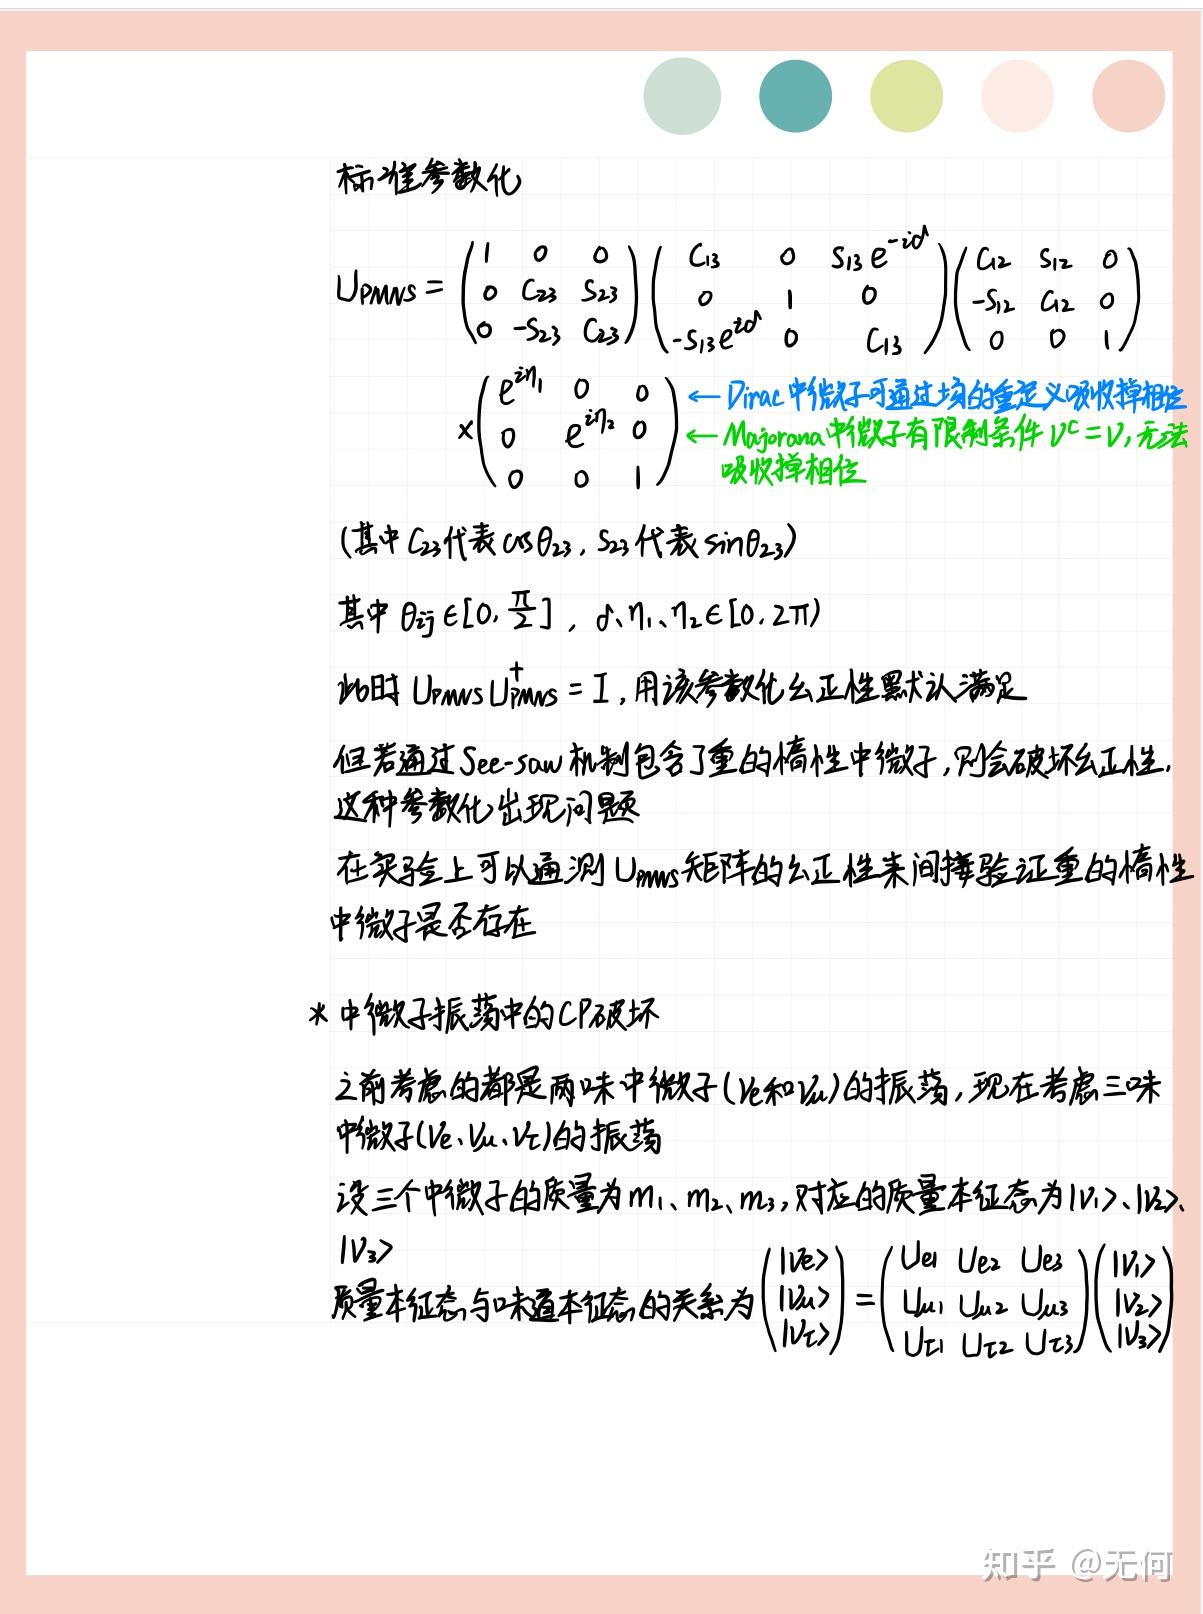 标准参数化
U_PMNS = (1 0 0; 0 C₂₃ S₂₃; 0 -S₂₃ C₂₃) (C₁₃ 0 S₁₃e^{-iδ}; 0 1 0; -S₁₃e^{iδ} 0 C₁₃) (C₁₂ S₁₂ 0; -S₁₂ C₁₂ 0; 0 0 1)
×(e^{iη₁} 0 0; 0 e^{iη₂} 0; 0 0 1)
← Dirac中微子可通过场的重定义吸收掉相位
← Majorana中微子有限制条件 ν^c = ν, 无法
吸收掉相位
(其中 C₂₃代表cosθ₂₃, S₂₃代表sinθ₂₃)
其中 θ_ij ∈ [0, π/2], δ、η₁、η₂ ∈ [0, 2π)
此时 U_PMNS U†_PMNS = I, 用该参数化幺正性默认满足
但若通过See-saw机制包含了重的惰性中微子, 则会破坏幺正性,
这种参数化出现问题
在实验上可以通测U_PMNS矩阵的幺正性来间接验证重的惰性
中微子是否存在
* 中微子振荡中的CP破坏
之前考虑的都是两味中微子(νe和νμ)的振荡, 现在考虑三味
中微子(νe、νμ、ντ)的振荡
设三个中微子的质量为m₁、m₂、m₃, 对应的质量本征态为|ν₁>、|ν₂>、
|ν₃>
质量本征态与味道本征态的关系为 (|νe>; |νμ>; |ντ>) = (Ue1 Ue2 Ue3; Uμ1 Uμ2 Uμ3; Uτ1 Uτ2 Uτ3) (|ν₁>; |ν₂>; |ν₃>)
知乎 @无何